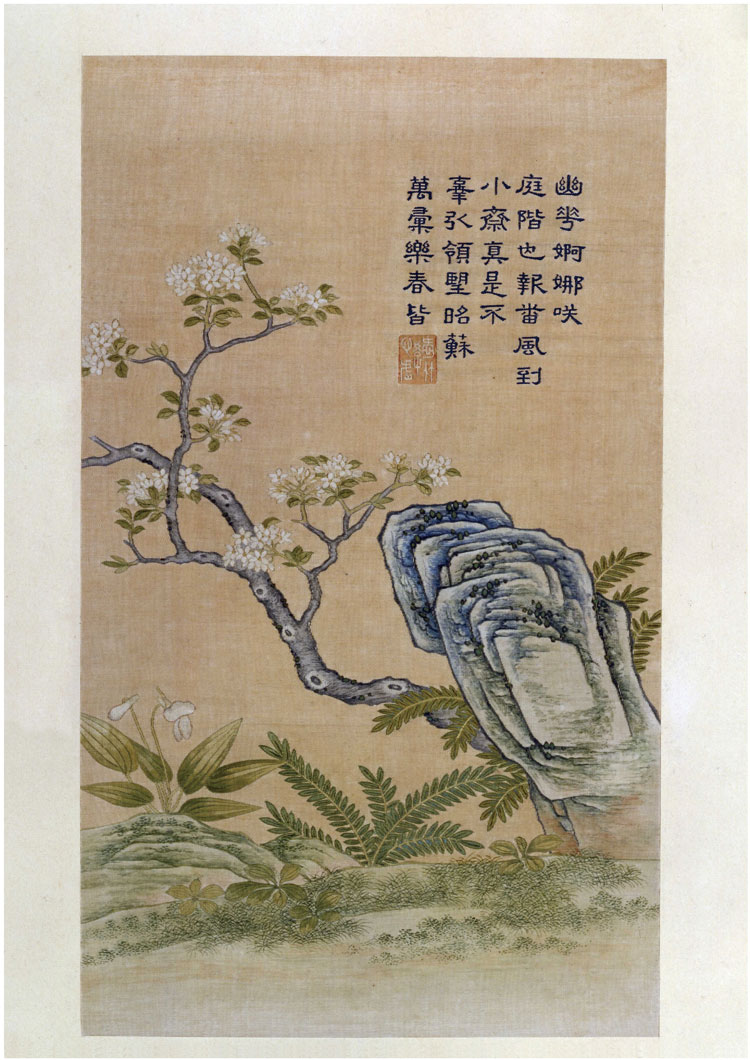 幽華婀娜咲
庭階也報番風到
小齋真是不
辜引領朢昭蘇
萬彙樂春皆